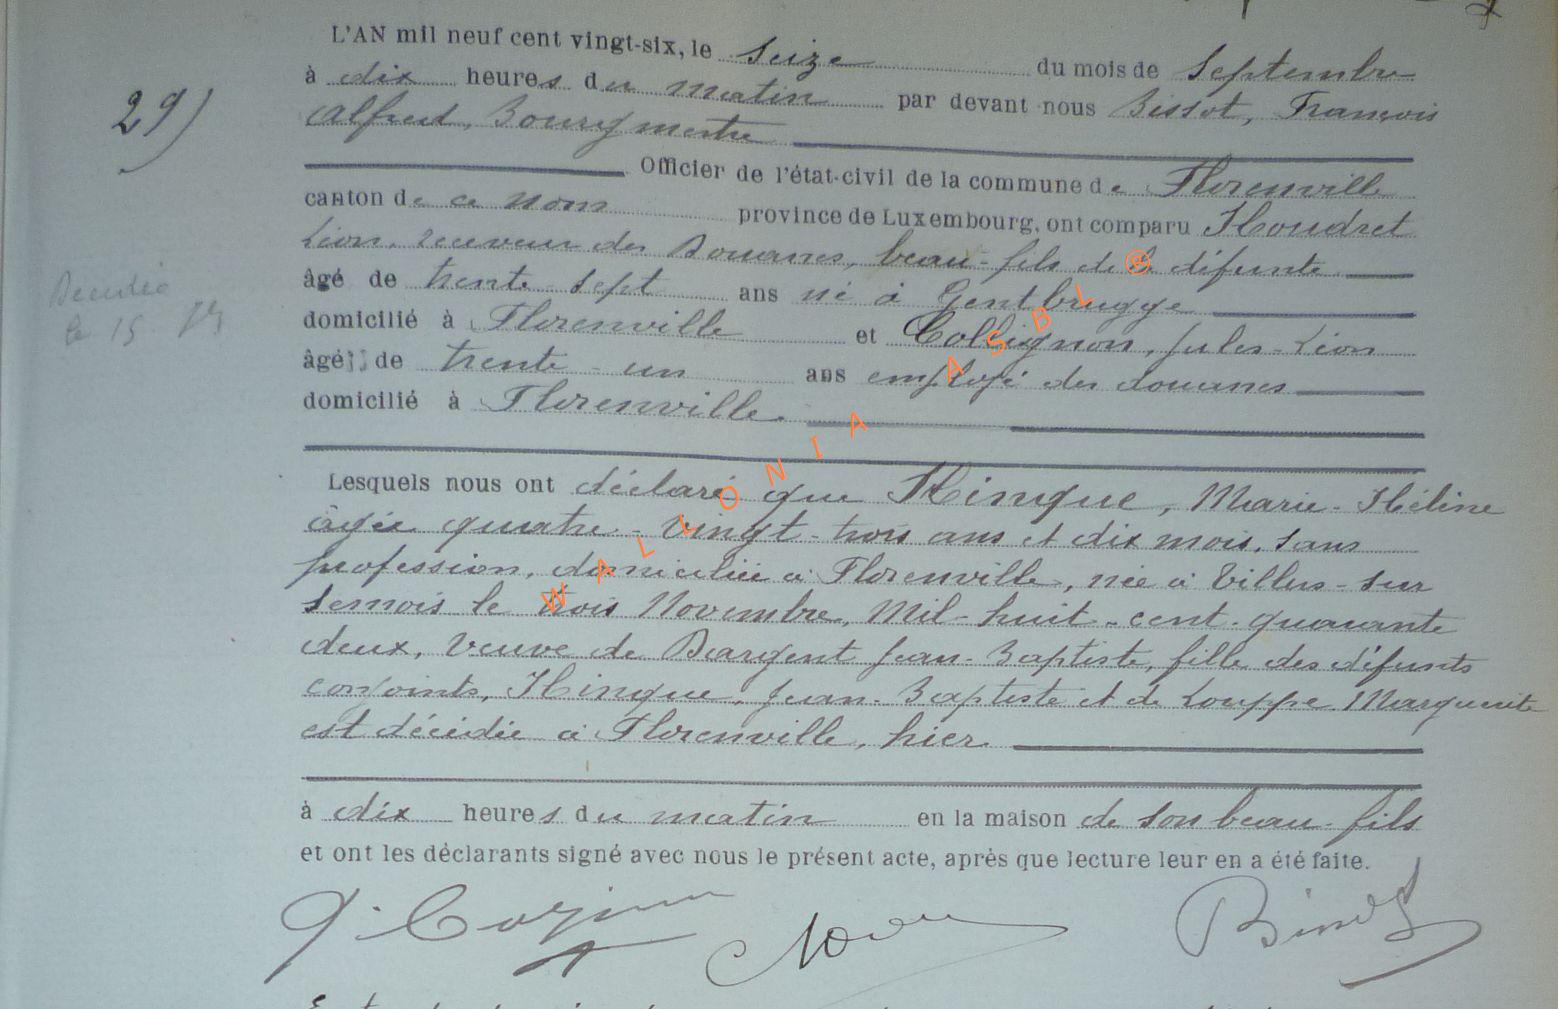 L'AN mil neuf cent vingt-six, le seize du mois de Septembre
à dix heures du matin par devant nous Bissot, François
Alfred, Bourgmestre
29)
Officier de l'état-civil de la commune de Florenville
canton de ce nom province de Luxembourg, ont comparu Houdret
Léon, receveur des Douanes, beau-fils de la défunte
âgé de trente-sept ans né à Gentbrugge
Décédée
le 15
domicilié à Florenville et Collignon, Jules-Léon
âgé de trente-un ans employé des douanes
domicilié à Florenville.
Lesquels nous ont déclaré que Hinque, Marie-Hélène
âgée quatre-vingt-trois ans et dix mois, sans
profession, domiciliée à Florenville, née à Villers-sur
Semois le trois Novembre, Mil-huit-cent-quarante
deux, Veuve de Dargent Jean-Baptiste, fille des défunts
conjoints, Hinque, Jean-Baptiste et de Louppe Marguerite
est décédée à Florenville, hier.
à dix heures du matin en la maison de son beau-fils
et ont les déclarants signé avec nous le présent acte, après que lecture leur en a été faite.
WALLONIA ASBL ®